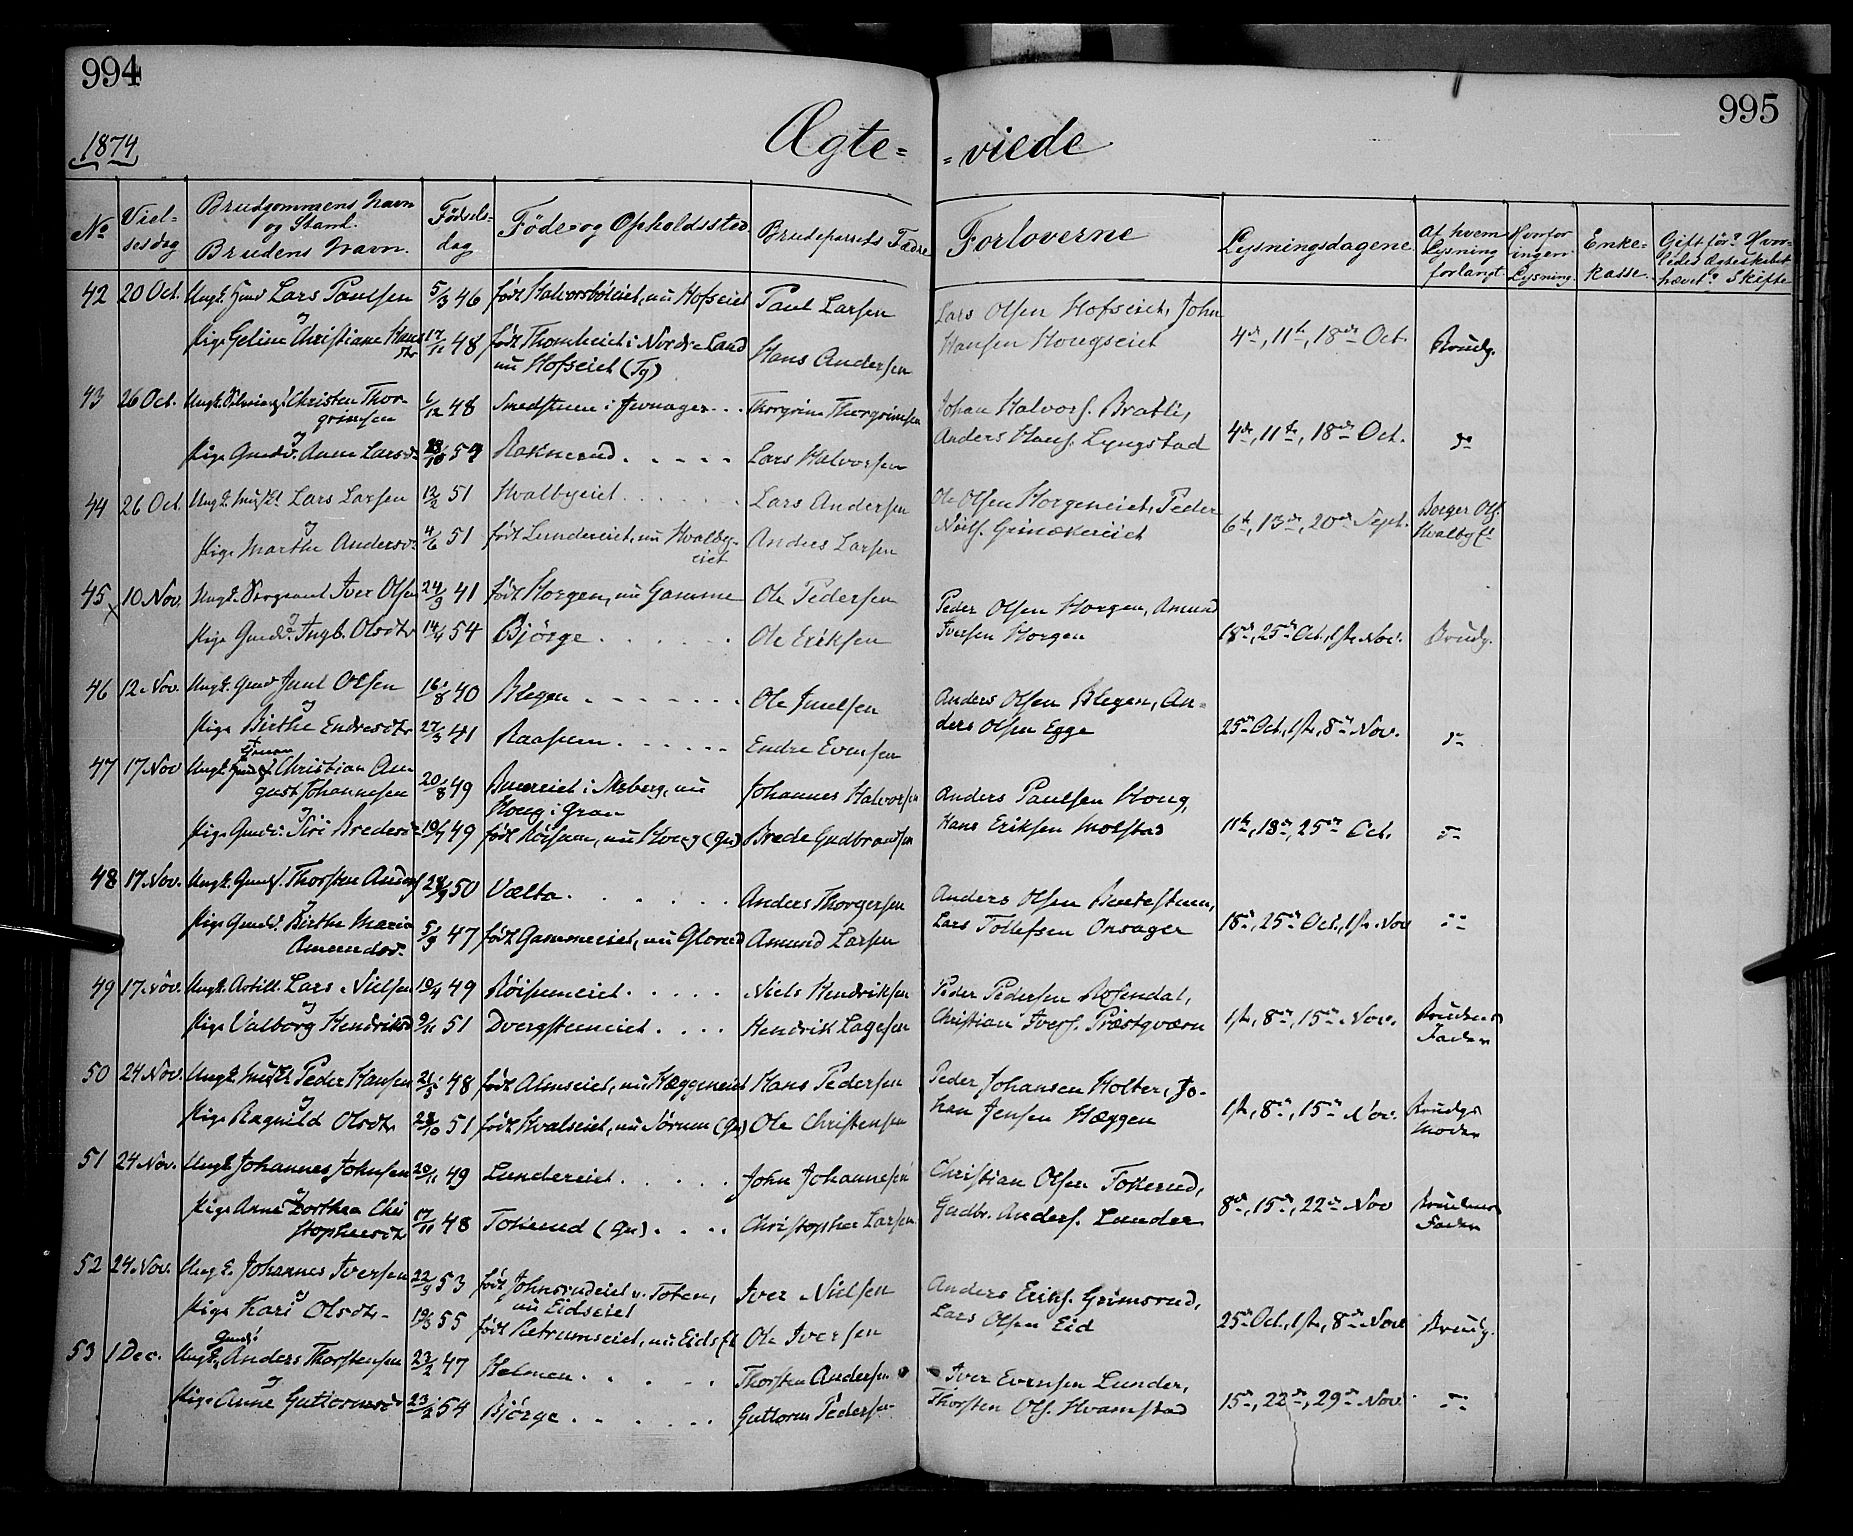 994
995
1874
Ægte= =viede
No
Viel-
sesdag
Brudgommens Navn
og Stand.
Brudens Navn.
Fødsels-
dag
Føde- og Opholdssted
Brudeparrets Fædre
Forloverne
Lysningsdagene
Af hvem
Lysning
forlangt
Hvorfor
ingen
Lysning.
Enke-
kasse.
Gift før? Hvor-
ledes Ægteskabet
hævet? Skifte
42 20 Oct. Ungk. Lars Paulsen 5/3 46 født Halvorsbøleiet, nu Hofseiet Paul Larsen
Lars Olsen Hofseiet, John
og
Pige Geline Christiane Hans 17/11 48 født Thomleiet i Nordre Land
dtr nu Hofseiet (Jg) Hans Andersen
Hansen Hougseiet 4de, 11te, 18de Oct. Brudg.
43 26 Oct. Ungk. Christen Thor- 6/12 48 Smedstuen i Jevnager Thorgrim Thorgrimsen
grimsen
Johan Halvors. Bratli,
og
Pige Gaardm. Anne Larsd. 54 Raknerud Lars Halvorsen
Anders Hans. Lyngstad 4de, 11te, 18de Oct. do
44 26 Oct. Ungk. Lars Larsen 12/2 51 Hvalbyeiet Lars Andersen
Ole Olsen Horgeneiet, Peder
og
Pige Marthe Andersd. 4/6 51 født Lundereiet, nu Hvalby-
eiet Anders Larsen
Niels. Grinakereiet 6te, 13de, 20de Sept. Borger Ols.
Hvalby E.
45 10 Nov. Ungk. Sergeant Iver Olsen 24/9 41 født Horgen, nu Gamme Ole Pedersen
Peder Olsen Horgen, Amund
og
Pige Gaardm. Ingb. Olsdtr 14/4 54 Bjørge Ole Eriksen
Iversen Horgen 18de, 25de Oct., 1ste Nov. Brudg.
46 12 Nov. Ungk. Juul Olsen 16/8 40 Blegen Ole Juelsen
Anders Olsen Blegen, An-
og
Pige Birthe Endresdtr 27/3 41 Raasum Endre Evensen
ders Olsen Egge 25de Oct., 1ste, 8de Nov. do
47 17 Nov Ungk. Christian Au- 20/8 49 i Aasberg, nu
gust Johannesen Houg i Gran Johannes Halvorsen
Anders Paulsen Houg,
og
Pige Gaardm. Siri Bredesd. 49 født Røisum, nu Houg (Gr) Brede Gudbrandsen
Hans Eriksen Molstad 11te, 18de, 25de Oct. do
48 17 Nov. Ungk. Thorsten Anders. 50 Vælta Anders Thorgersen
Anders Olsen
og
Pige Gaardm. Birthe Marie
Amundsd. 5/9 47 født Gammeeiet, nu Glorud Amund Larsen
Lars Tollefsen Onsager 18de, 25de Oct., 1ste Nov do
49 17 Nov. Ungk. Artill. Lars Nielsen 19/4 49 Røisumeiet Niels Hendriksen
Peder Pedersen Rosendal,
og
Pige Valborg Hendriksd 9/11 51 Dvergsteneiet Hendrik Lagesen
Christian Ivers. Præstqværn 1ste, 8de, 15de Nov. Brudens
Fader
50 24 Nov. Ungk. Peder Hansen 21/3 48 født Almseiet, nu Hæggeneiet Hans Pedersen
Peder Johansen Holter, Jo-
og
Pige Ragnild Olsdtr 51 født Hvalseiet, nu Sørum (Gr) Ole Christensen
han Jensen Hæggen 1ste, 8de, 15de Nov. Brudgs
Moder
51 24 Nov. Ungk. Johannes Johnsen 20/11 49 Lundereiet John Johannesen
Christian Olsen Tokerud,
og
Pige Anne Dorthea Chri
stophersdtr 17/11 48 Tokerud (Gr) Christopher Larsen
Gudbr. Anders. Lunder 8de, 15de, 22de Nov Brudens
Fader
52 24 Nov. Ungk. Johannes Iversen 22/9 53 født Johnsrudeiet v. Toten,
nu Eidseiet Iver Nielsen
Anders Eriks. Grimsrud,
og
Pige Kari Olsdtr 19/3 55 født Retrumseiet, nu Eids E. Ole Iversen
Lars Olsen Eid 25de Oct., 1ste, 8de Nov Brudg.
53 1 Dec. Ungk. Gaardm. Anders Thorstensen 23/2 47 Helmen Thorsten Andersen
Iver Evensen Lunder,
og
Pige Anne Guttormsd 23/2 54 Bjørge Guttorm Pedersen
Thorsten Ols. Hvamstad 15de, 22de, 29de Nov. do